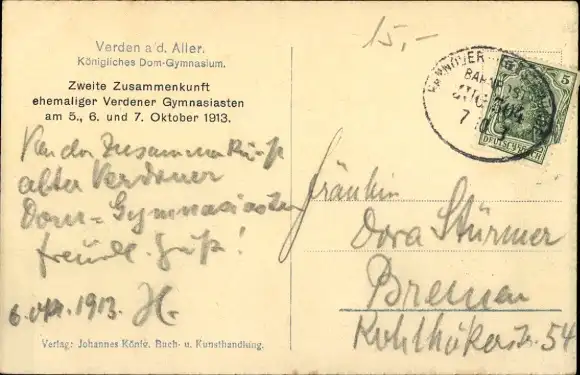 15,-
Verden a/d. Aller.
Königliches Dom-Gymnasium.
Zweite Zusammenkunft
ehemaliger Verdener Gymnasiasten
am 5., 6. und 7. Oktober 1913.
Von der Zusammenkunft
alter Verdener
Dom-Gymnasiasten
freundl. Gruß!
6. Okt. 1913. H.
Fräulein
Dora Stürmer
Bremen
Kohlhökerstr. 54
HANNOVER
BAHNPOST
ZUG
7 10
5
DEUTSCHES REICH
Verlag: Johannes König, Buch- u. Kunsthandlung.